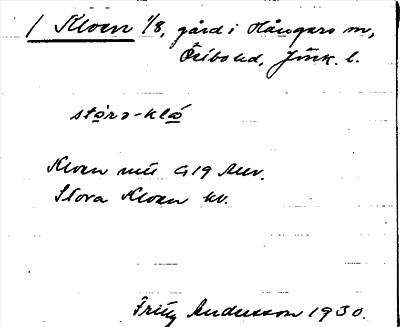 1 Kloen 1/8, gård i Hångers sn,
Östbo hd, Jönk. l.
stóra-klǻ
Kloen mtl G 19 Auv.
Stora Kloen kv.
Fritz Andersson 1930.